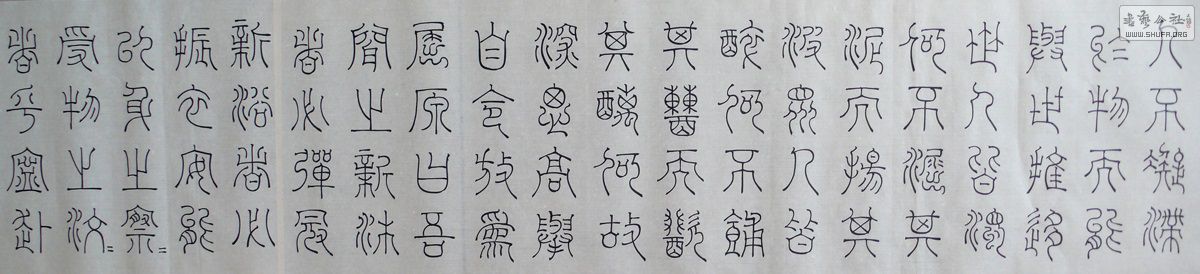 人不凝滯
於物而能
與世推移
世人皆濁
何不淈其
泥而揚其
波眾人皆
醉何不餔
其糟而歠
其醨何故
深思高舉
自令放為
屈原曰吾
聞之新沐
者必彈冠
新浴者必
振衣安能
以身之察=
受物之汶=
者乎寧赴
書藝公社
WWW.SHUFA.ORG